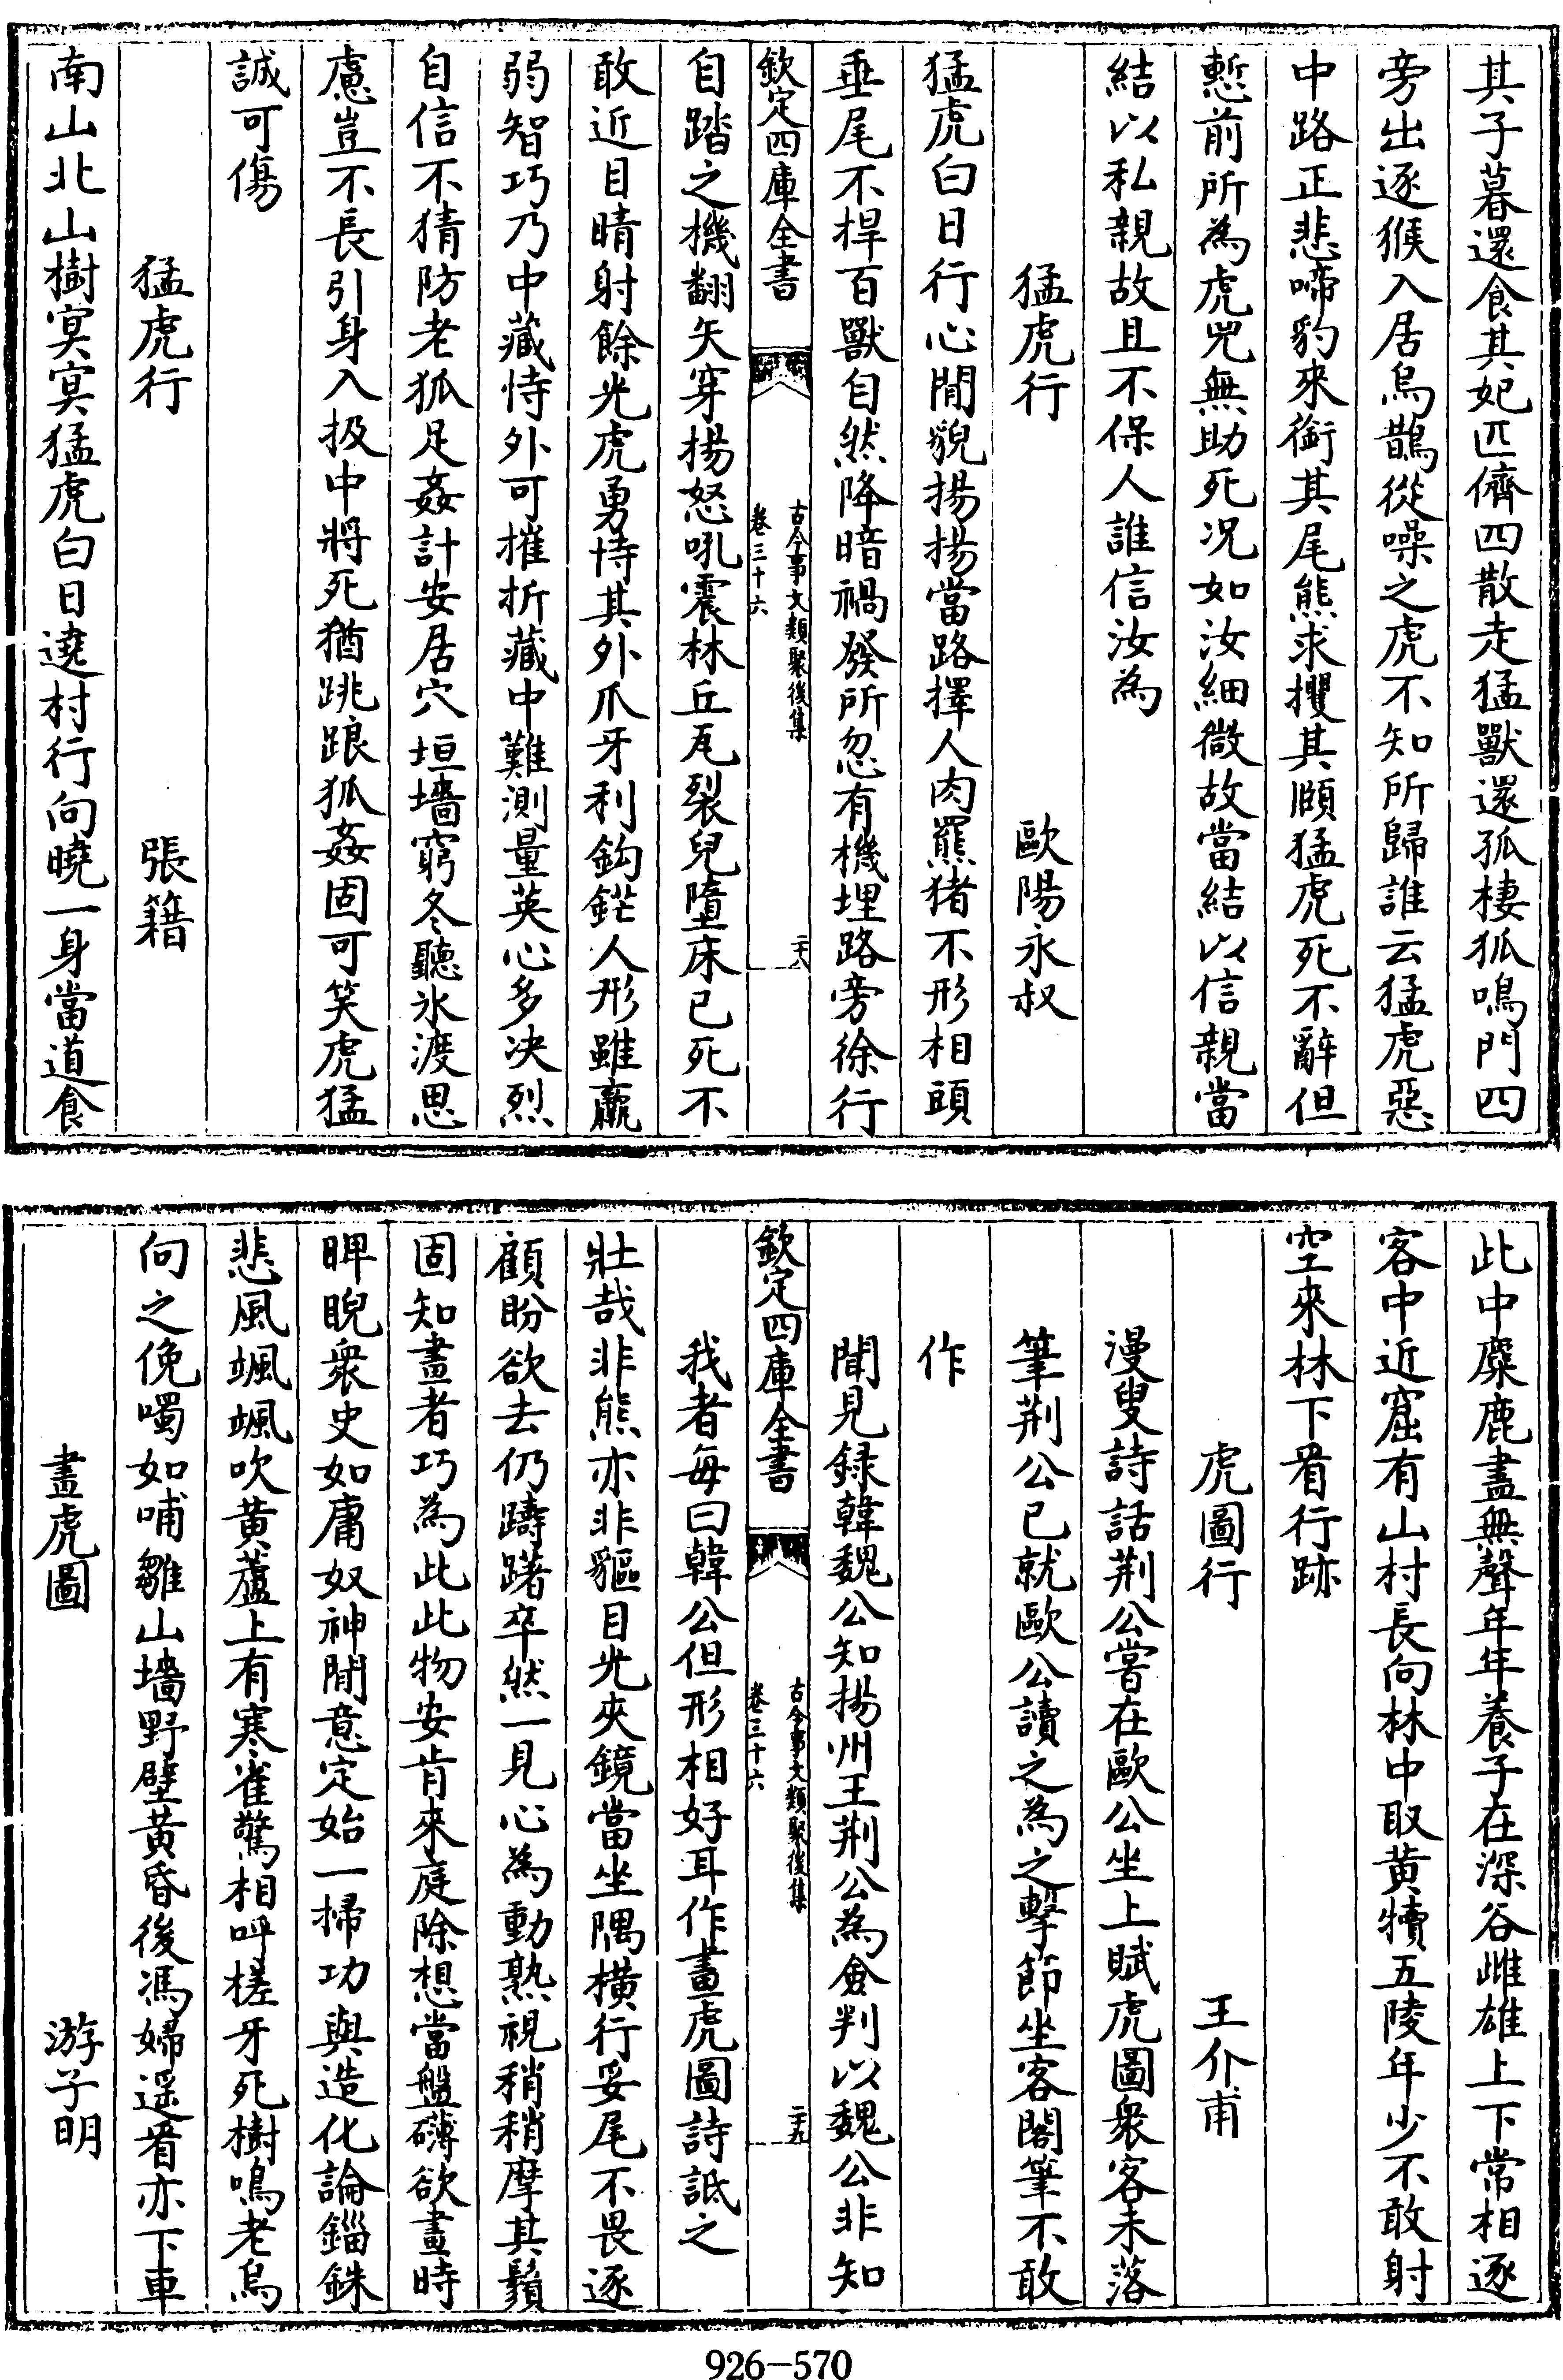 其子暮還食其妃匹儕四散走猛獸還孤棲狐鳴門四
旁出逐猴入居烏鵲從噪之虎不知所歸誰云猛虎惡
中路正悲啼豹來銜其尾熊求攫其頤猛虎死不辭但
慙前所為虎兕無助死况如汝細微故當結以信親當
結以私親故且不保人誰信汝為
猛虎行 歐陽永叔
猛虎白日行心閒貌揚揚當路擇人肉羆猪不形相頭
垂尾不捍百獸自然降暗禍發所忽有機埋路旁徐行
欽定四庫全書 古今事文類聚後集 卷三十六 二十八
自踏之機翻矢穿揚怒吼震林丘瓦裂兒墮床已死不
敢近目睛射餘光虎勇恃其外爪牙利鈎鋩人形雖羸
弱智巧乃中藏恃外可摧折藏中難測量英心多决烈
自信不猜防老狐足姦計安居穴垣墻窮冬聽氷渡思
慮豈不長引身入扱中將死猶跳踉狐姦固可笑虎猛
誠可傷
猛虎行 張籍
南山北山樹冥冥猛虎白日遶村行向曉一身當道食
此中麋鹿盡無聲年年養子在深谷雌雄上下常相逐
客中近窟有山村長向林中取黄犢五陵年少不敢射
空來林下看行跡
虎圖行 王介甫
漫叟詩話荆公嘗在歐公坐上賦虎圖衆客未落
筆荆公已就歐公讀之為之擊節坐客閣筆不敢
作
聞見録韓魏公知揚州王荆公為僉判以魏公非知
欽定四庫全書 古今事文類聚後集 卷三十六 二十九
我者每曰韓公但形相好耳作畫虎圖詩詆之
壯哉非熊亦非貙目光夾鏡當坐隅横行妥尾不畏逐
顧盼欲去仍躊躇卒然一見心為動熟視稍稍摩其鬚
固知畫者巧為此此物安肯來庭除想當盤礴欲畫時
睥睨衆史如庸奴神閒意定始一掃功與造化論錙銖
悲風颯颯吹黄蘆上有寒雀驚相呼槎牙死樹鳴老烏
向之俛噣如哺雛山墻野壁黄昏後馮婦遥看亦下車
畫虎圖 游子明
926-570